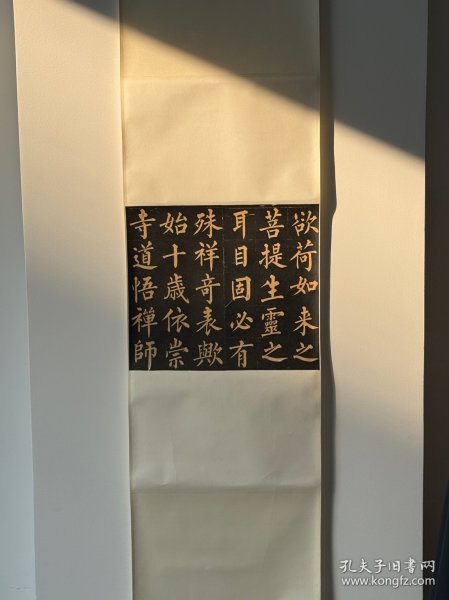 欲荷如来之
菩提生靈之
耳目固必有
殊祥奇表歟
始十歲依崇
寺道悟禅師
孔夫子旧书网
www.kongfz.com